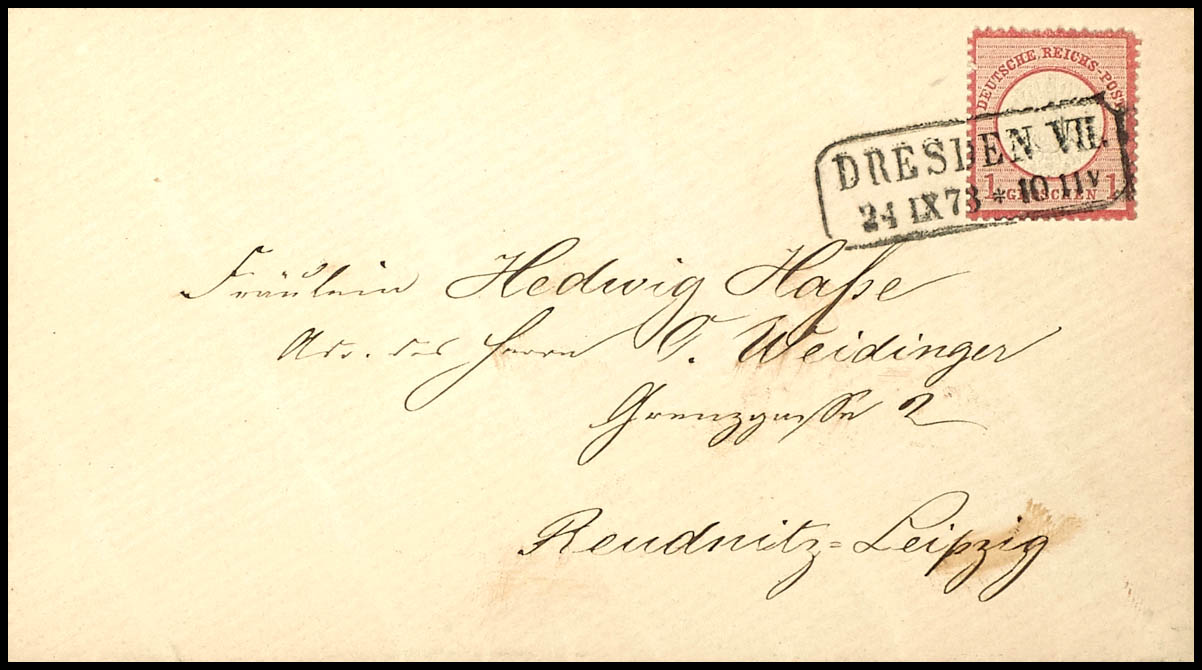 DEUTSCHE REICHS-POST
1 GROSCHEN 1
DRESDEN VII.
24 IX 73 * 10 11 V
Fräulein Hedwig Haſse
Adr. des Herrn O. Weidinger
Grenzgasse 2
Reudnitz=Leipzig